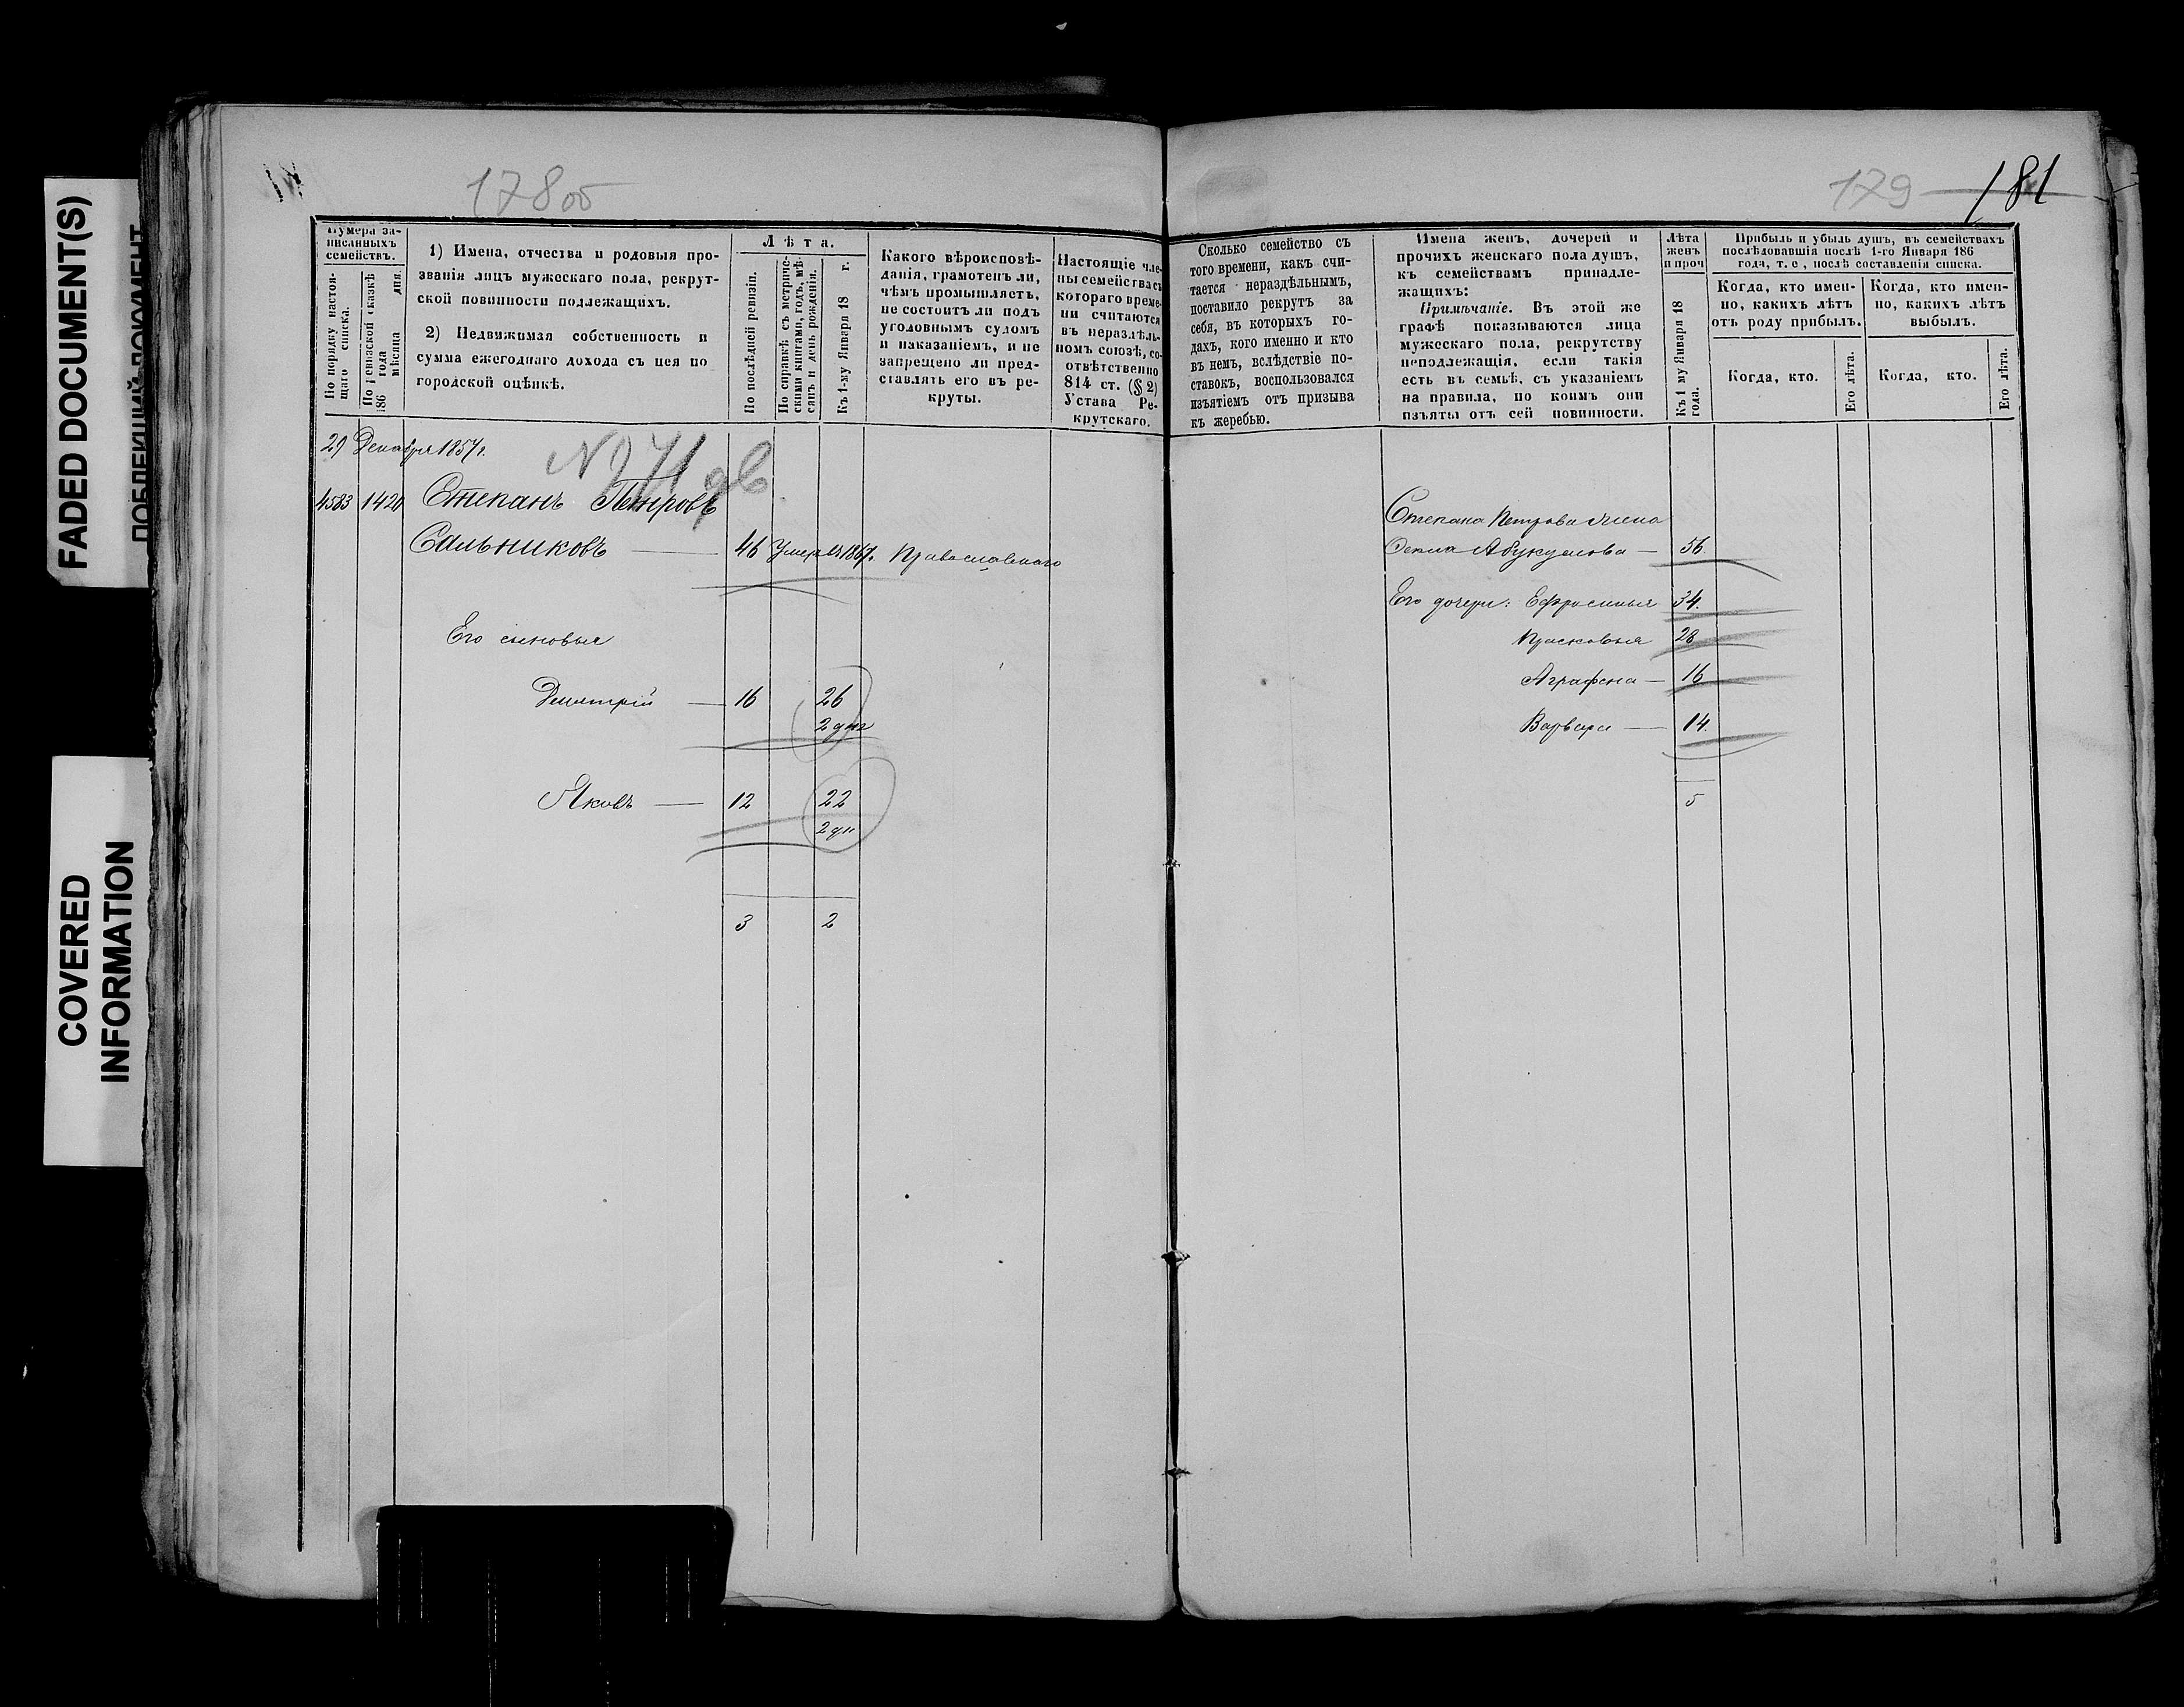 FADED DOCUMENT(S)
COVERED
INFORMATION
178 об
179 181
Нумера за-
писанныхъ
семействъ.
По порядку настоя-
щаго списка.
По ревизской сказкѣ
186 года
мѣсяца дня.
1) Имена, отчества и родовыя про-
званія лицъ мужескаго пола, рекрут-
ской повинности подлежащихъ.
2) Недвижимая собственность и
сумма ежегоднаго дохода съ нея по
городской оцѣнкѣ.
Лѣта.
По послѣдней ревизіи.
По справкѣ съ метриче-
скими книгами, годъ, мѣ-
сяцъ и день рожденія.
Къ 1-му Января 18 г.
Какого вѣроисповѣ-
данія, грамотенъ ли,
чѣмъ промышляетъ,
не состоитъ ли подъ
уголовнымъ судомъ
и наказаніемъ, и не
запрещено ли пред-
ставлять его въ ре-
круты.
Настоящіе чле-
ны семейства съ
котораго време-
ни считаются
въ нераздѣль-
номъ союзѣ, со-
отвѣтственно
814 ст. (§ 2)
Устава Ре-
крутскаго.
Сколько семейство съ
того времени, какъ счи-
тается нераздѣльнымъ,
поставило рекрутъ за
себя, въ которыхъ го-
дахъ, кого именно и кто
въ немъ, вслѣдствіе по-
ставокъ, воспользовался
изъятіемъ отъ призыва
къ жеребью.
Имена женъ, дочерей и
прочихъ женскаго пола душъ,
къ семействамъ принадле-
жащихъ:
Примѣчаніе. Въ этой же
графѣ показываются лица
мужескаго пола, рекрутству
неподлежащія, если такія
есть въ семьѣ, съ указаніемъ
на правила, по коимъ они
изъяты отъ сей повинности.
Лѣта
женъ
и проч
Къ 1 му Января 18
года.
Прибыль и убыль душъ, въ семействахъ
послѣдовавшія послѣ 1-го Января 186
года, т. е , послѣ составленія списка.
Когда, кто имен-
но, какихъ лѣтъ
отъ роду прибылъ.
Когда, кто.
Его лѣта.
Когда, кто имен-
но, какихъ лѣтъ
выбылъ.
Когда, кто.
Его лѣта.
29 Декабря 1857 г.
№ 71
4583 142 Степанъ Петровъ
Сальниковъ — 46 Умеръ въ 186 г. Православнаго
Его сыновья
Дмитрій — 16 26
2 дня
Яковъ — 12 22
2 дн
3 2
Степана Петрова жена
Абукумова — 56.
Его дочери: Ефросинья 34.
Прасковья 28
Аграфена — 16
Варвара — 14.
5